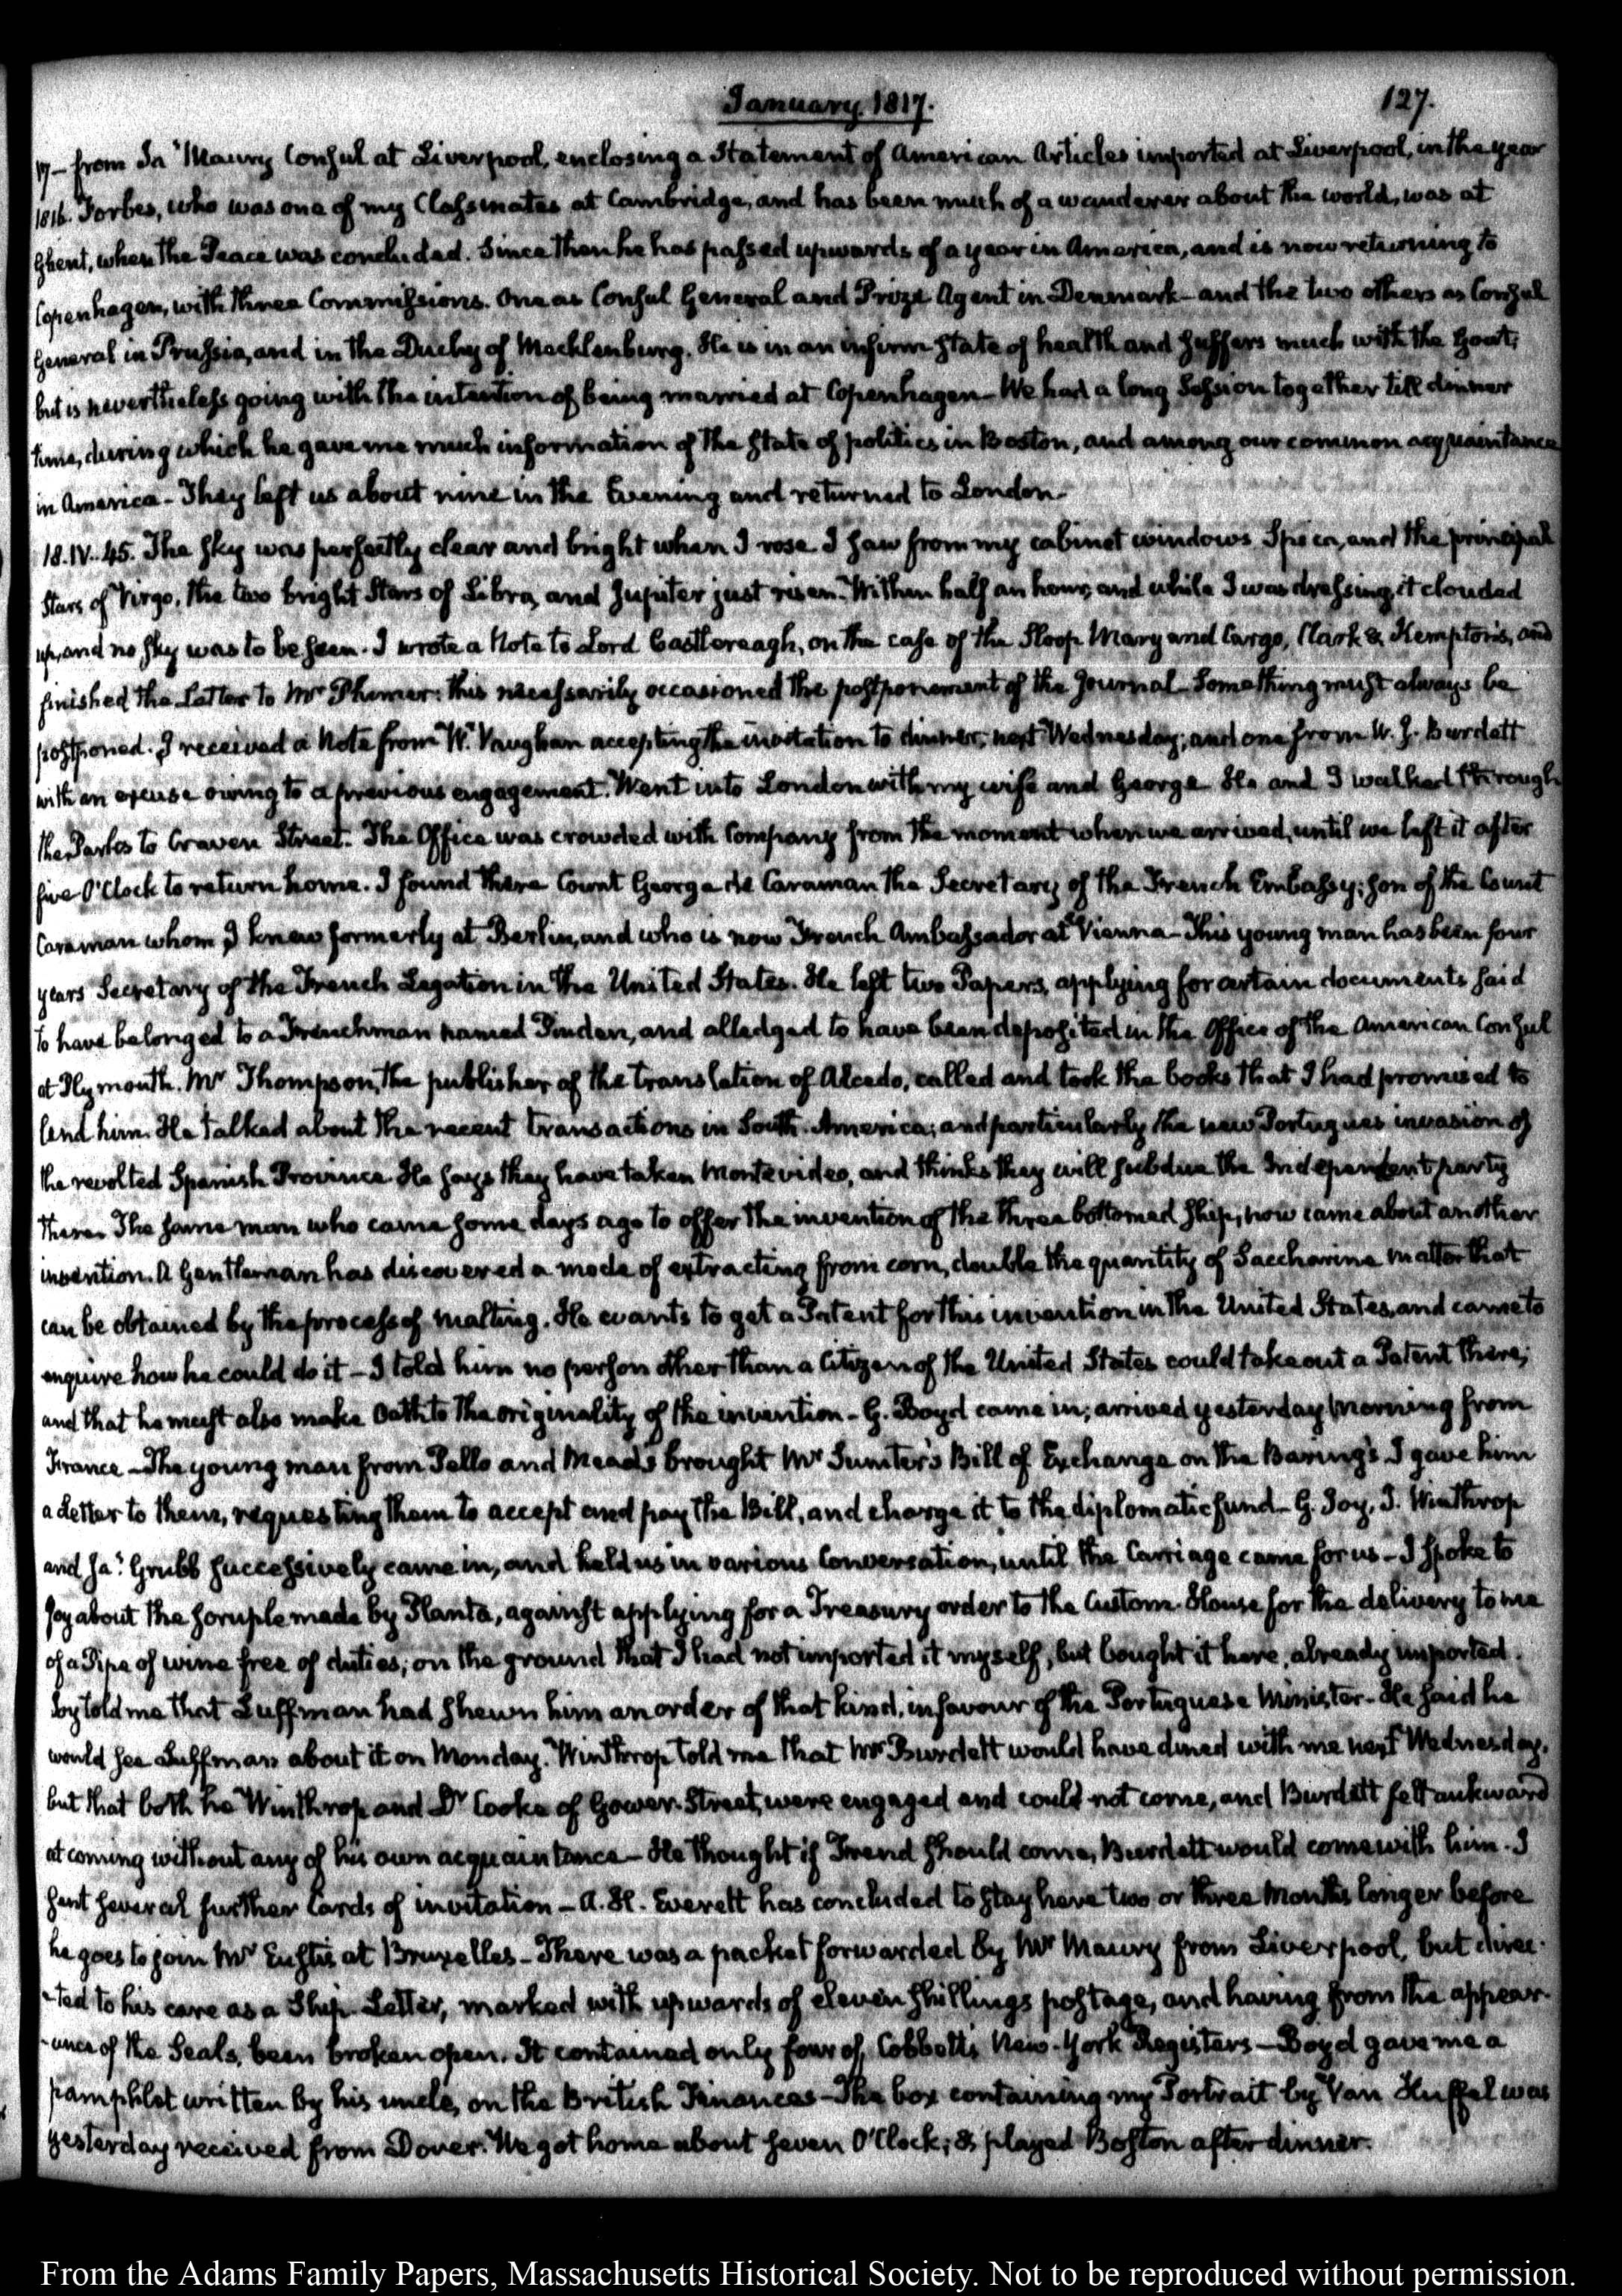 January. 1817.
127.
17 – from Ja.s Maury Consul at Liverpool, enclosing a Statement of American Articles imported at Liverpool, in the year
1816. Forbes, who was one of my Classmates at Cambridge, and has been much of a wanderer about the world, was at
Ghent, when the Peace was concluded. Since then he has passed upwards of a year in America, and is now returning to
Copenhagen, with three Commissions. One as Consul General and Prize Agent in Denmark – and the two others as Consul
General in Prussia, and in the Duchy of Mecklenburg. He is in an infirm state of health and suffers much with the Gout;
but is nevertheless going with the intention of being married at Copenhagen – We had a long Session together till dinner
time, during which he gave me much information of the state of politics in Boston, and among our common acquaintance
in America – They left us about nine in the Evening and returned to London.
18. IV..45. The sky was perfectly clear and bright when I rose I saw from my cabinet windows Spica, and the principal
Stars of Virgo, the two bright Stars of Libra, and Jupiter just risen. Within half an hour, and while I was dressing, it clouded
up, and no sky was to be seen. I wrote a Note to Lord Castlereagh, on the case of the Sloop Mary and Cargo, Clark & Kempton's, and
finished the Letter to Mr Plumer: this necessarily occasioned the postponement of the Journal – Something must always be
postponed. I received a Note from W. Vaughan accepting the invitation to dinner, next Wednesday; and one from W. J. Burdett
with an excuse owing to a previous engagement. Went into London with my wife and George He and I walked through
the Parks to Craven Street. The Office was crowded with Company from the moment when we arrived, until we left it after
five O'Clock to return home. I found there Count George de Caraman the Secretary of the French Embassy; son of the Count
Caraman whom I knew formerly at Berlin, and who is now French Ambassador at Vienna – This young man has been four
years Secretary of the French Legation in the United States. He left two Papers, applying for certain documents said
to have belonged to a Frenchman named Pinden, and alledged to have been deposited in the Office of the American Consul
at Plymouth. Mr Thompson, the publisher of the translation of Alcedo, called and took the books that I had promised to
lend him. He talked about the recent transactions in South-America; and particularly the new Portugues invasion of
the revolted Spanish Province. He says they have taken Montevideo, and thinks they will subdue the Independent party
there. The same man who came some days ago to offer the invention of the three bottomed ship, now came about another
invention. A Gentleman has discovered a mode of extracting from corn, double the quantity of Saccharine matter that
can be obtained by the process of malting. He wants to get a Patent for this invention in the United States, and came to
enquire how he could do it – I told him no person other than a Citizen of the United States could take out a Patent there;
and that he must also make Oath to the originality of the invention – G. Boyd came in; arrived yesterday Morning from
France – The young man from Pello and Mead's brought Mr Sumter's Bill of Exchange on the Baring's I gave him
a Letter to them, requesting them to accept and pay the Bill, and charge it to the diplomatic fund – G. Joy, T. Winthrop
and Ja.s Grubb successively came in, and held us in various Conversation, until the Carriage came for us – I spoke to
Joy about the scruple made by Planta, against applying for a Treasury order to the Custom-House for the delivery to me
of a Pipe of wine free of duties; on the ground that I had not imported it myself, but bought it here, already imported.
Joy told me that Luffman had shewn him an order of that kind, in favour of the Portuguese Minister – He said he
would see Luffman about it on Monday. Winthrop told me that Mr Burdett would have dined with me next Wednesday,
but that both he Winthrop and Dr Cooke of Gower-Street, were engaged and could not come, and Burdett felt aukward
at coming without any of his own acquaintance – He thought if Frend should come, Burdett would come with him. I
sent several further Cards of invitation – A. H. Everett has concluded to stay here two or three Months longer before
he goes to join Mr Eustis at Bruxelles – There was a packet forwarded by Mr Maury from Liverpool, but direc-
-ted to his care as a Ship-Letter, marked with upwards of eleven shillings postage, and having from the appear-
-ance of the Seals, been broken open. It contained only four of Cobbett's New-York Registers – Boyd gave me a
pamphlet written by his uncle, on the British Finances – The box containing my Portrait by Van Huffel was
yesterday received from Dover. We got home about seven O'Clock; & played Boston after dinner.
From the Adams Family Papers, Massachusetts Historical Society. Not to be reproduced without permission.